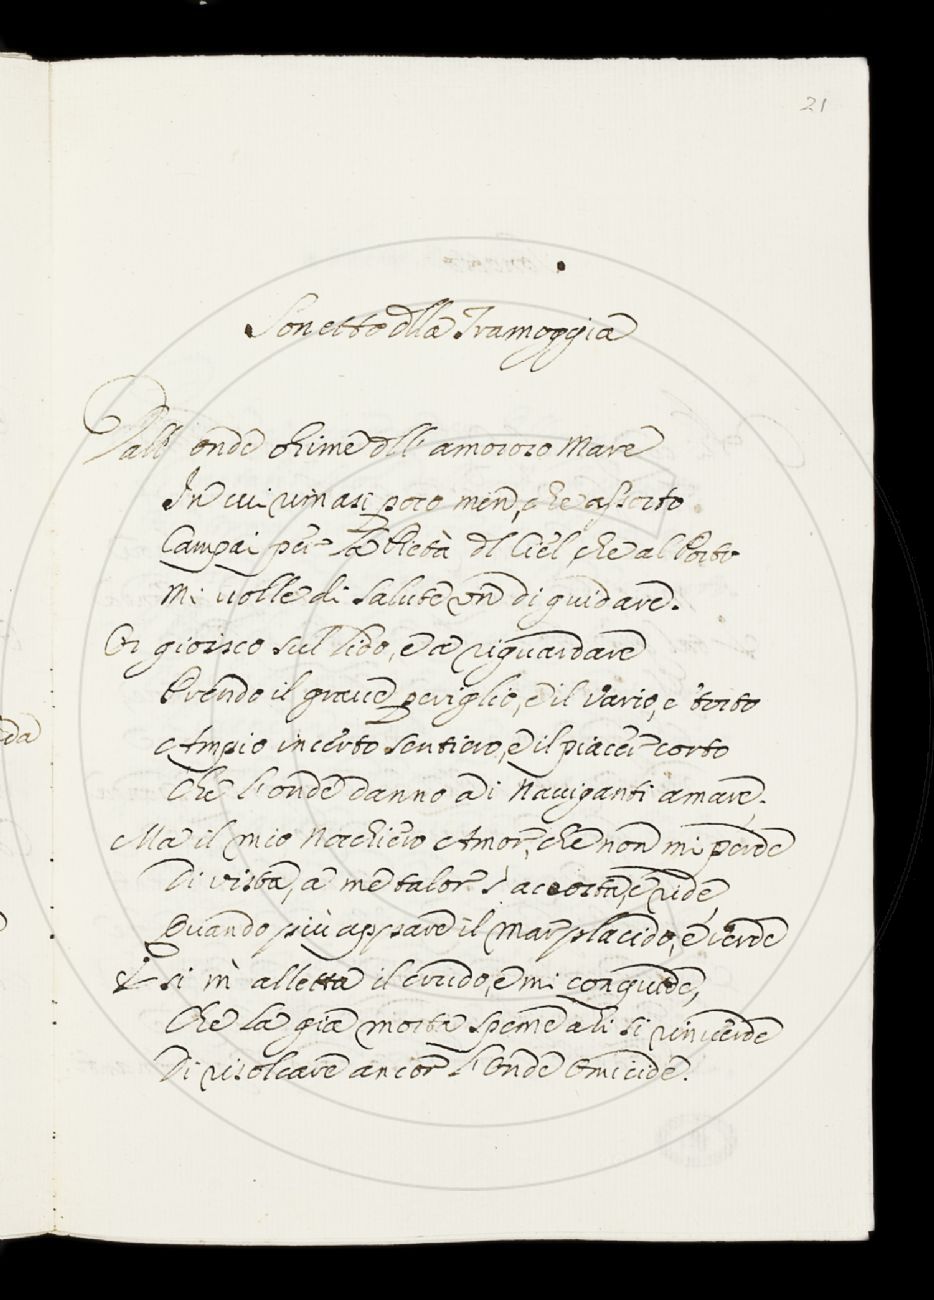 21
Sonetto dlla Tramoggia
Dall' onde ohime dll' amoroso Mare
In cui rimasi poco men, che assorto
Campai per la Pietà dl Ciel, che al Porto
Mi volle di salute vn di guidare.
Or gioisco sul lido, e a riguardare
Prendo il graue periglio, e il vario, e torto
Ampio incerto sentiero, e il piacer corto
Che l'onde danno a i Nauiganti amare.
Ma il mio Nochiero Amor, che non mi perde
Di vista, a me talor s' accosta, e ride,
Quando più appare il mar placido, e verde
E si m' alletta il crudo, e mi conquide,
Che la già morta speme a li si rinuerde
Di risolcare ancor l'Onde Omicide.
da